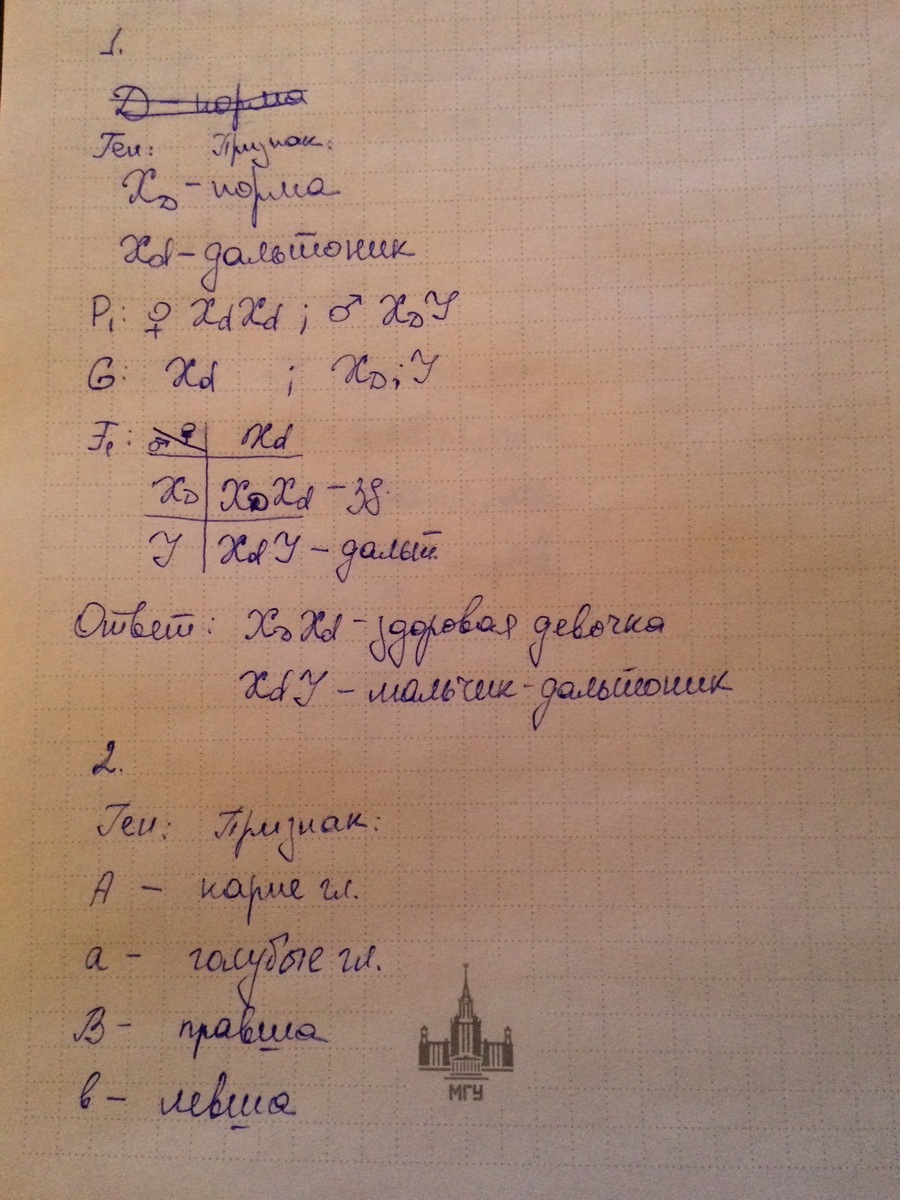 1.
D – норма
Ген: Признак:
XD – норма
Xd – дальтоник
P1: ♀ XdXd ; ♂ XDY
G: Xd ; XD; Y
F1: ♂ ♀ Xd
XD XDXd – зд.
Y XdY – дальт.
Ответ: XDXd – здоровая девочка
XdY – мальчик-дальтоник
2.
Ген: Признак:
A – карие гл.
a – голубые гл.
B – правша
в – левша
МГУ